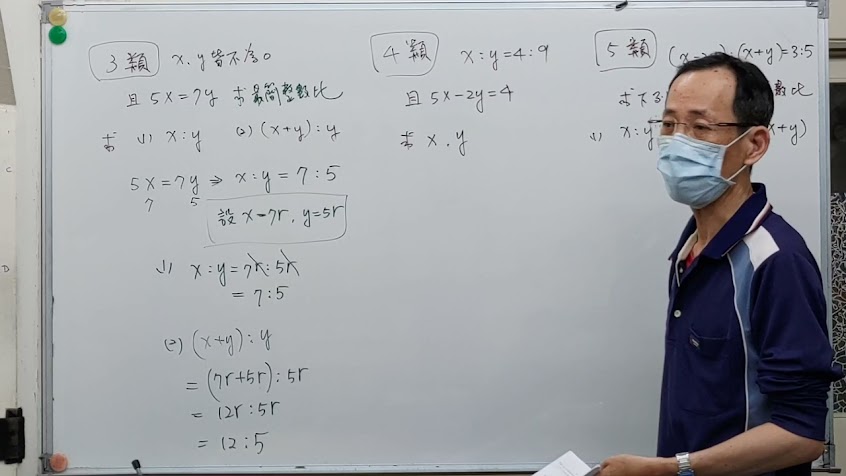 3類 x、y皆不為0
且 5x=7y 求最簡整數比
求 (1) x:y (2) (x+y):y
5x=7y ⇒ x:y=7:5
7 5
設 x=7r, y=5r
(1) x:y=7r:5r
=7:5
(2) (x+y):y
=(7r+5r):5r
=12r:5r
=12:5
4類 x:y=4:9
且 5x-2y=4
求 x、y
5類 (x- :(x+y)=3:5
求下3. 數比
(1) x:y x+y)
C
D